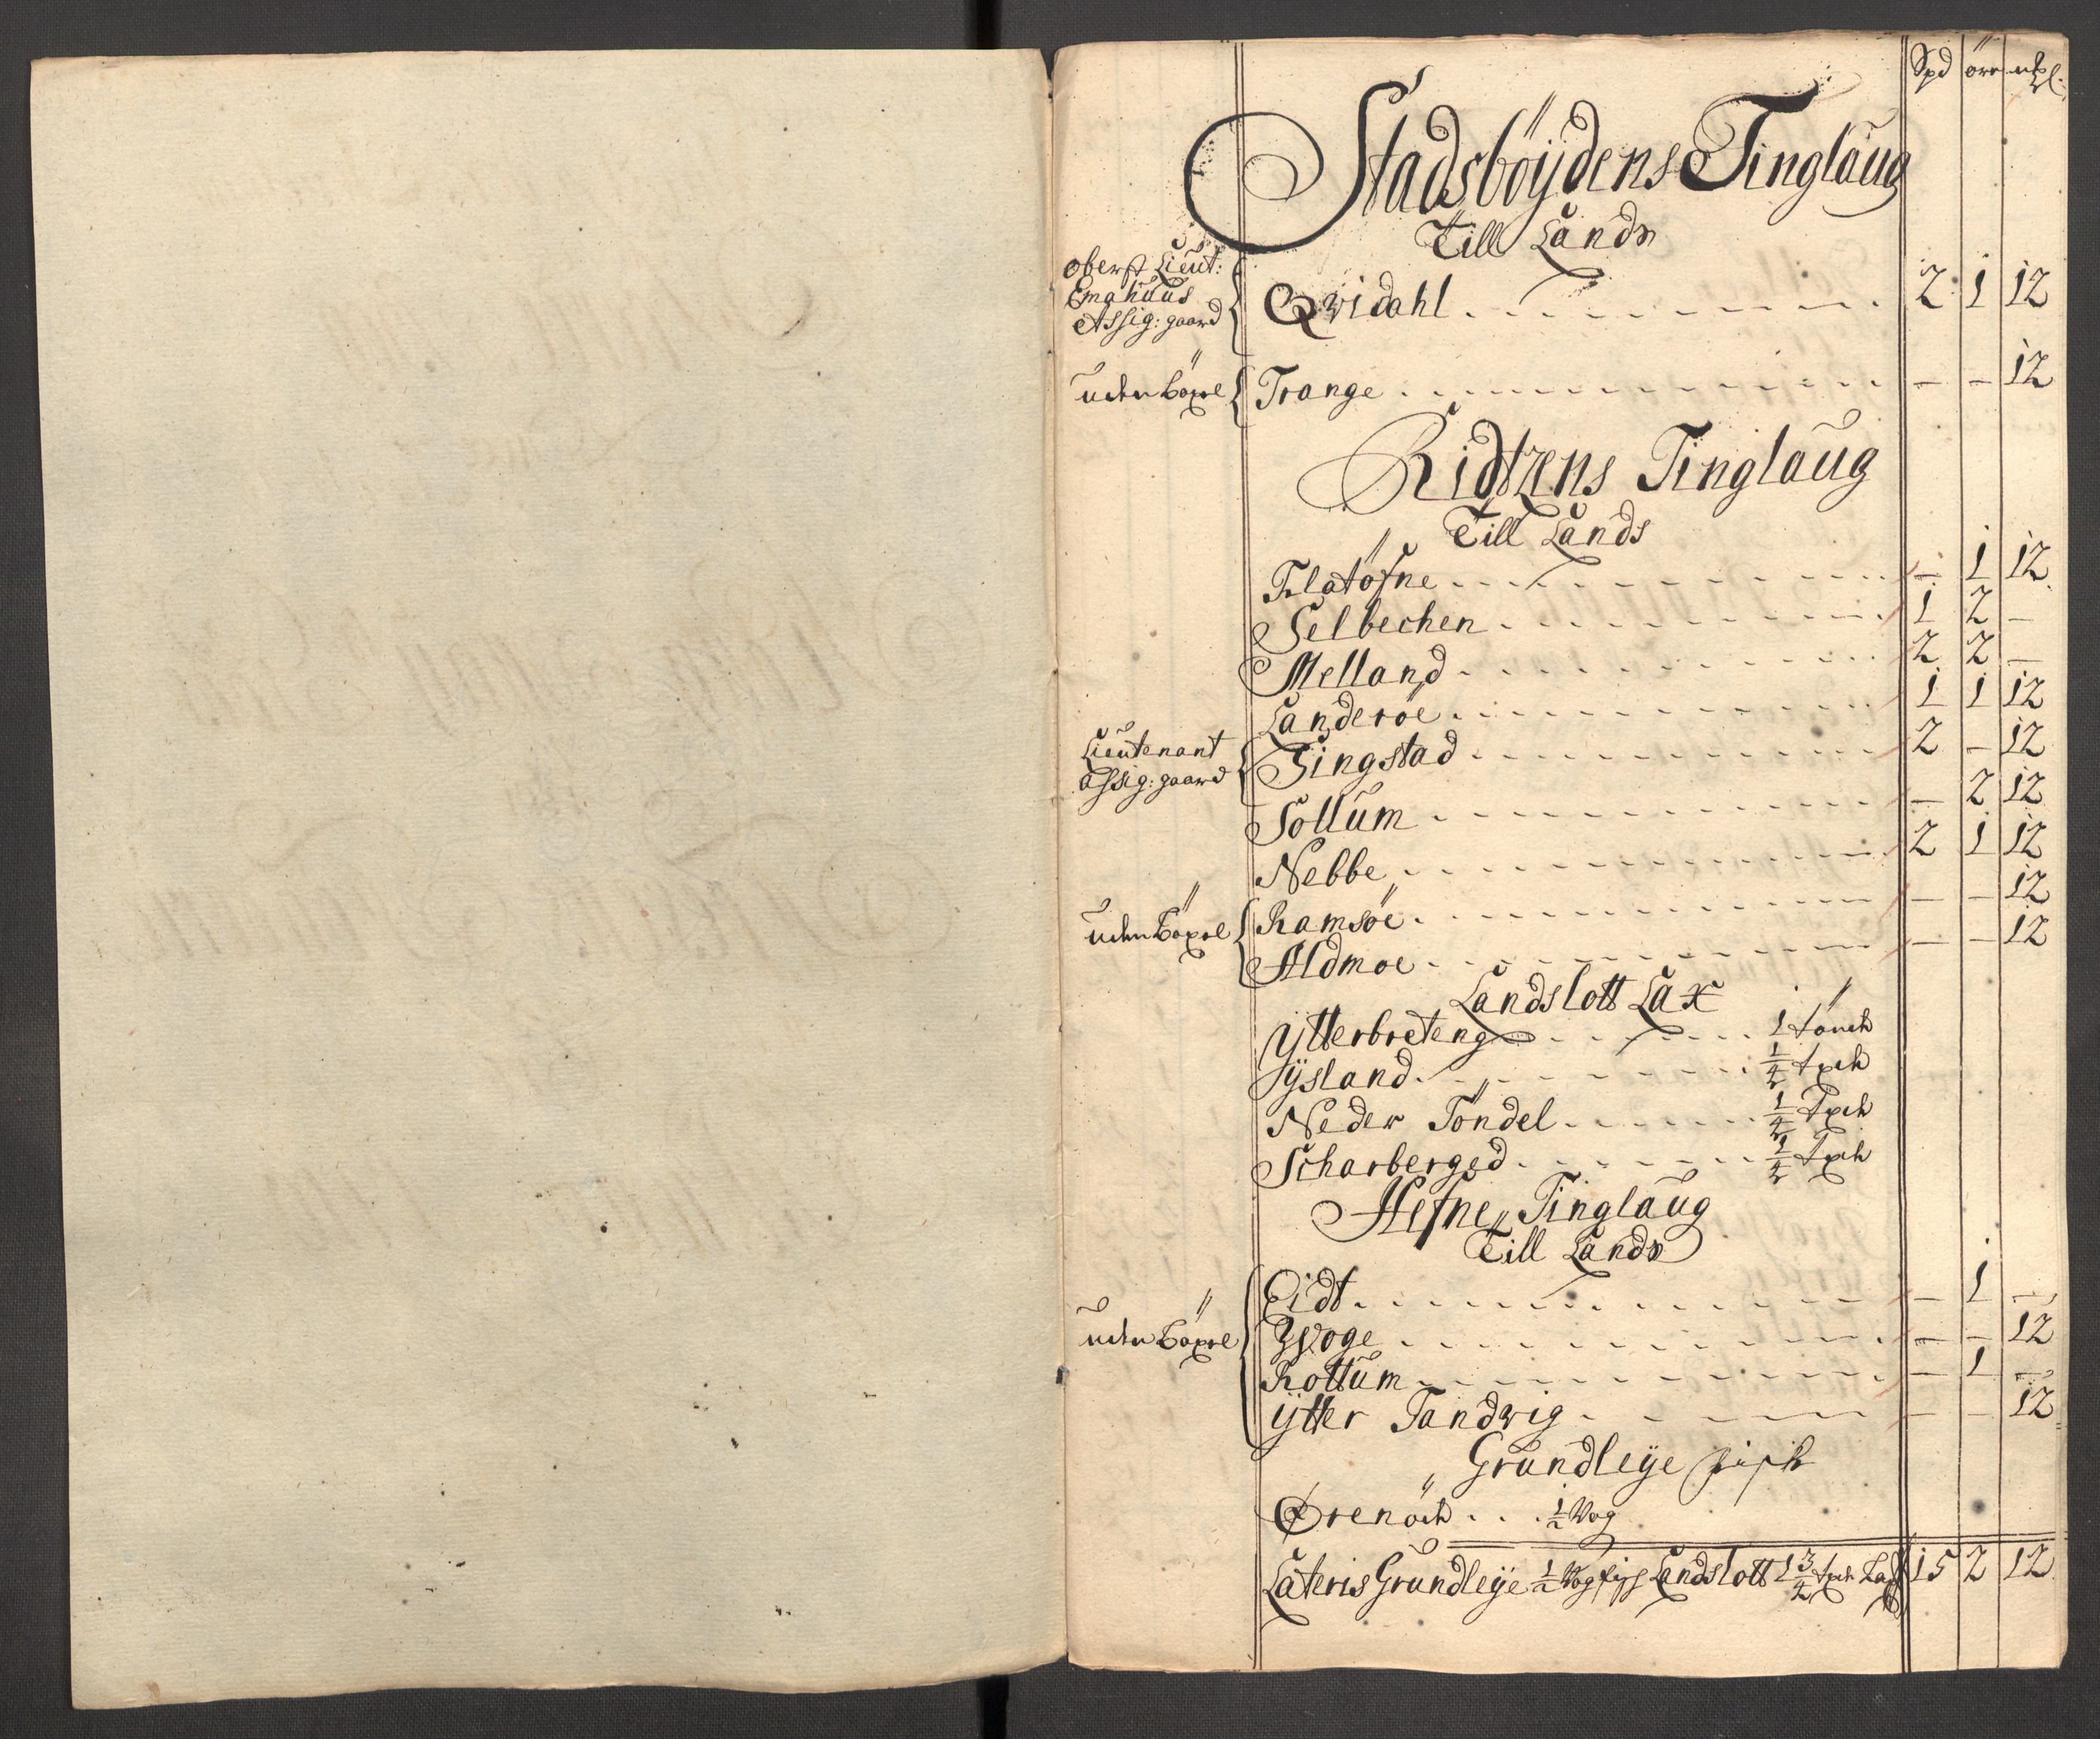 Spd öre mkl
Stadsböÿdens Tinglaug
Till Lands
Oberst Lieut:
Emahuus
Assig: gaard
Qvidahl 2 1 12
uden Böxel Trange - - 12
Ridtzens Tinglaug
Till Lands
Flatöfne - 1 12
Selbechen 1 2 -
Melland 2 2 -
Landeröe 1 1 12
Lieutenant
assig: gaard
Singstad 2 - 12
Sollum - 2 12
Nebbe 2 1 12
uden Böxel Ramsöe - - 12
Aldmoe - - 12
Landslott Lax
Ytterbreteng 1 tönde
Ÿsland ¼ tde
Neder Töndel ¼ tde
Scharberged ¼ tde
Hefne Tinglaug
Till Lands
Eidt - 1 -
uden Böxel Woge - - 12
Rottum - 1 -
Ÿtter Tandvig - - 12
Grundleÿe fisk
Örenöch ½ Vog
Lateris Grundleÿe ½ Vog fisk Landslott 1 ¾ tde Lax 15 2 12